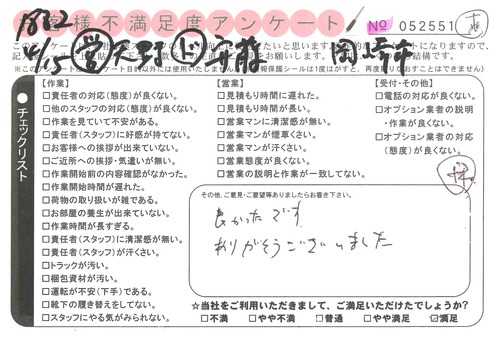 お客様不満足度アンケート
No 052551
1822
4/15
岡崎市
チェックリスト
【作業】
□責任者の対応(態度)が良くない。
□他のスタッフの対応(態度)が良くない。
□作業を見ていて不安がある。
□責任者(スタッフ)に好感が持てない。
□お客様への挨拶が出来ていない。
□ご近所への挨拶・気遣いが無い。
□作業開始前の内容確認がなかった。
□作業開始時間が遅れた。
□荷物の取り扱いが雑である。
□お部屋の養生が出来ていない。
□作業時間が長すぎる。
□責任者(スタッフ)に清潔感が無い。
□責任者(スタッフ)が汗くさい。
□トラックが汚い。
□梱包資材が汚い。
□運転が不安(下手)である。
□靴下の履き替えをしてない。
□スタッフにやる気がみられない。
【営業】
□見積もり時間に遅れた。
□見積もり時間が長い。
□営業マンに清潔感が無い。
□営業マンが煙草くさい。
□営業マンが汗くさい。
□営業態度が良くない。
□営業の説明と作業が一致してない。
【受付・その他】
□電話の対応が良くない。
□オプション業者の説明
・作業が良くない。
□オプション業者の対応
(態度)が良くない。
その他、ご意見・ご要望等ありましたらお書き下さい。
良かったです
ありがとうございました
☆当社をご利用いただきまして、ご満足いただけたでしょうか?
□不満 □やや不満 □普通 □やや満足 ☑満足